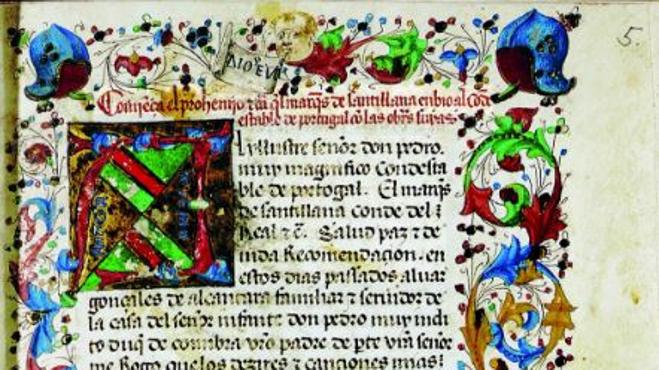 5.
DIOEVI
Comiença el prohemio τ cā ql marqs de santillana enbio al Cōde
estable de portugal cō las obrs suyas
Al yllustre señor don pedro.
muy magnifico Condesta
ble de portogal. El marqs
de santillana conde del
Real τ c̄. Salud paz τ de
uida Recomendacion. en
estos dias passados aluar
gonçales de alcantara familiar τ seruidor de
la casa del señor infante don pedro muy incli
to duq̄ de coimbra vr̄o padre de pte vr̄a señor
me Rogo que los dezires τ canciones mias